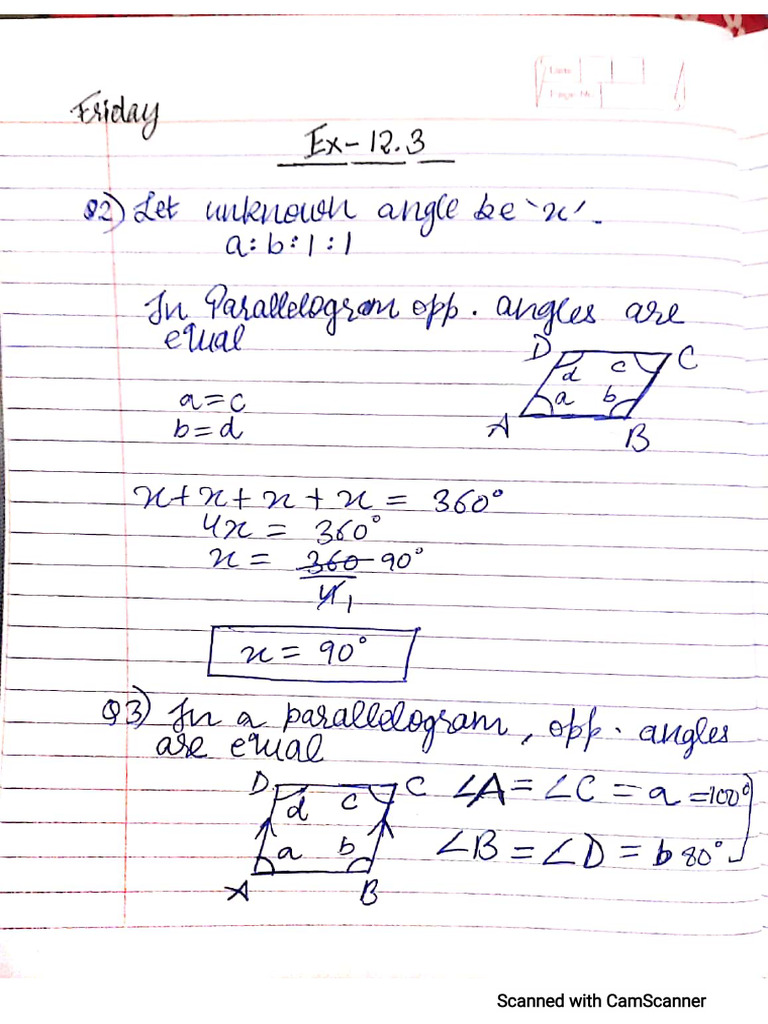 Friday
Ex-12.3
Q2) Let unknown angle be 'x'.
a:b:1:1
In Parallelogram opp. angles are
equal
D C
d c
a b
A B
a=c
b=d
x+x+x+x = 360°
4x = 360°
x = 360 90°
4 1
x = 90°
Q3) In a parallelogram, opp. angles
are equal
D C ∠A = ∠C = a =100°
d c
a b ∠B = ∠D = b 80°
A B
Scanned with CamScanner